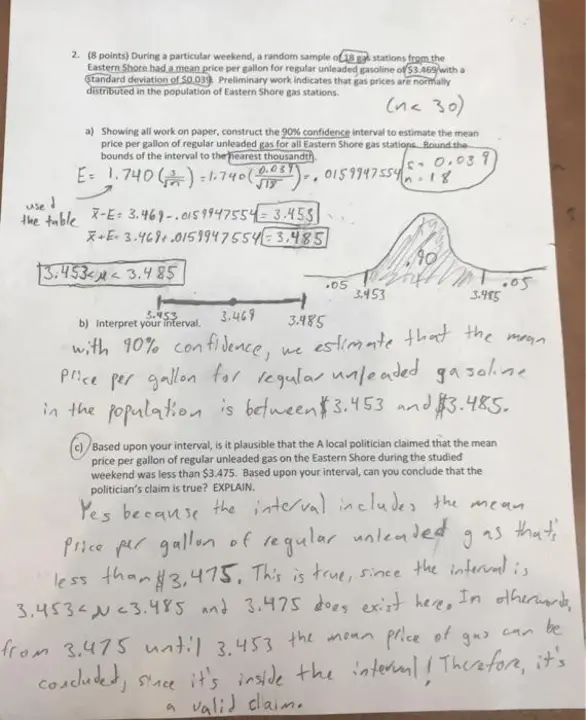 2. (8 points) During a particular weekend, a random sample of 18 gas stations from the
Eastern Shore had a mean price per gallon for regular unleaded gasoline of $3.469 with a
standard deviation of $0.039. Preliminary work indicates that gas prices are normally
distributed in the population of Eastern Shore gas stations.
(n < 30)
a) Showing all work on paper, construct the 90% confidence interval to estimate the mean
price per gallon of regular unleaded gas for all Eastern Shore gas stations. Round the
bounds of the interval to the nearest thousandth.
s = 0.039
n = 18
E = 1.740 (s/√n) = 1.740 (0.039/√18) = .0159947554
used
the table
x̄-E = 3.469-.0159947554 = 3.453
x̄+E = 3.469+.0159947554 = 3.485
3.453 < μ < 3.485
.90
.05 .05
3.453 3.485
3.453 3.469 3.485
b) Interpret your interval.
with 90% confidence, we estimate that the mean
price per gallon for regular unleaded gasoline
in the population is between $3.453 and $3.485.
c) Based upon your interval, is it plausible that the A local politician claimed that the mean
price per gallon of regular unleaded gas on the Eastern Shore during the studied
weekend was less than $3.475. Based upon your interval, can you conclude that the
politician's claim is true? EXPLAIN.
Yes because the interval includes the mean
price per gallon of regular unleaded gas that's
less than $3.475. This is true, since the interval is
3.453 < μ < 3.485 and 3.475 does exist here. In otherwords,
from 3.475 until 3.453 the mean price of gas can be
concluded, since it's inside the interval! Therefore, it's
a valid claim.